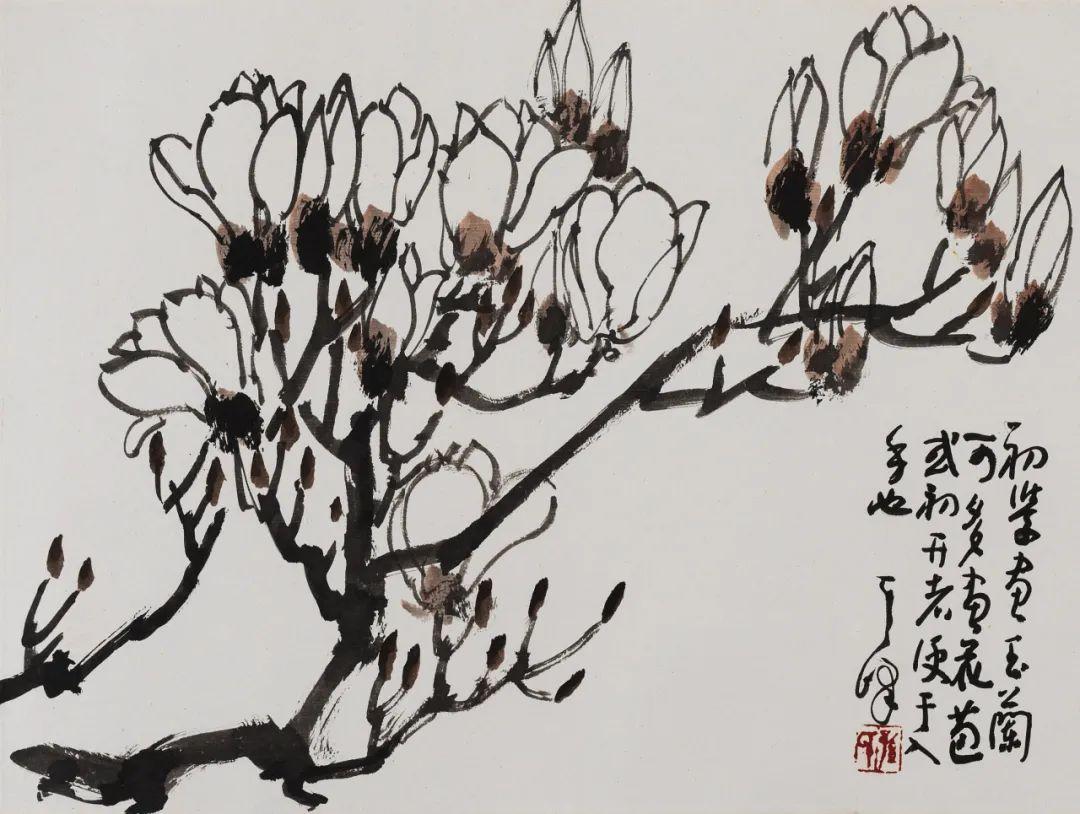 初学画玉蘭
可多画花苞
或初开者便于入
手也